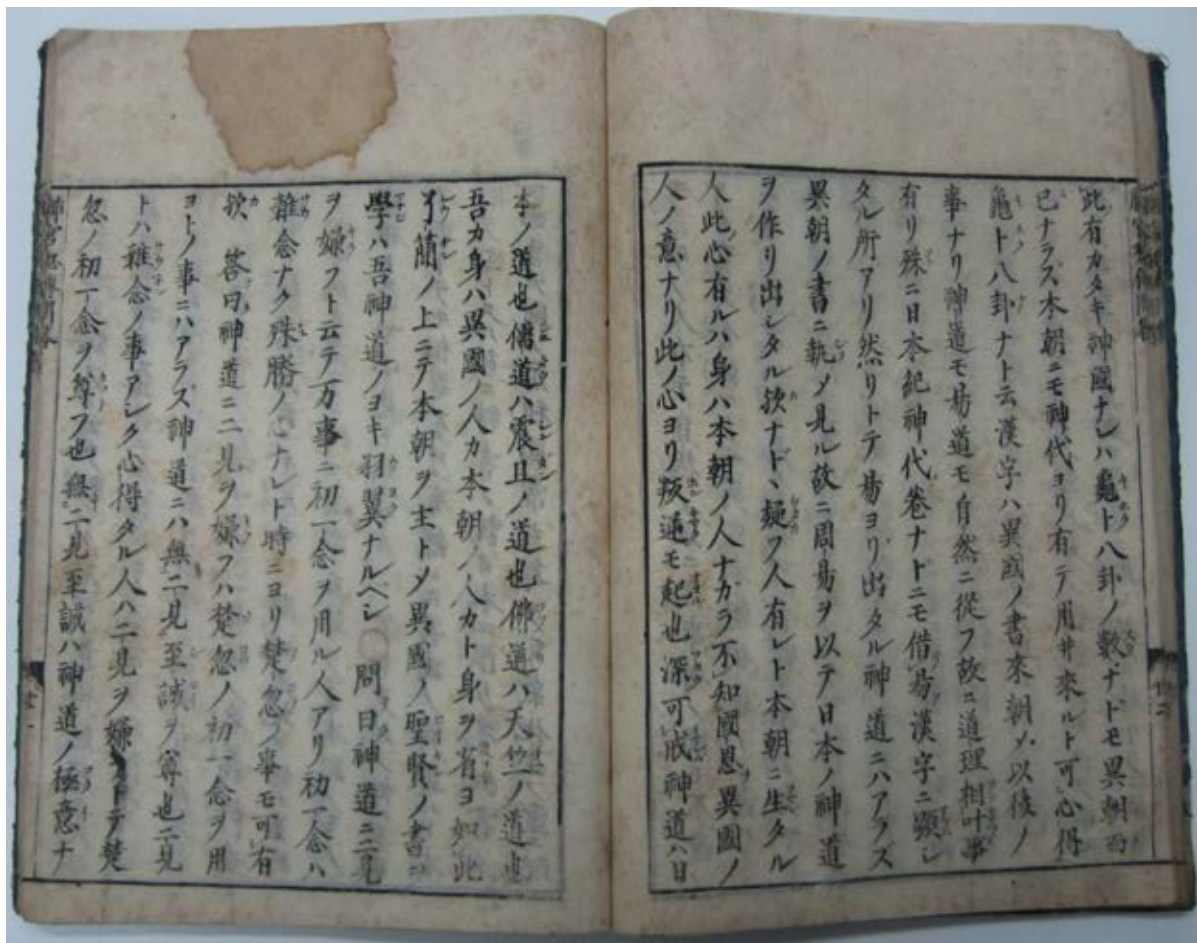 此有カタキ神國ナレハ龜卜八卦ノ數ナドモ異朝而
已ナラズ本朝ニモ神代ヨリ有テ用井來ルト可心得
龜卜八卦ナト云漢字ハ異國ノ書來朝メ以後ノ
事ナリ神道モ昜道モ自然ニ從フ故ニ道理相叶事
有リ殊ニ日本紀神代卷ナトニモ借昜漢字ニ顯レ
タル所アリ然リトテ昜ヨリ出タル神道ニハアラズ
異朝ノ書ニ執メ見ル故ニ周昜ヲ以テ日本ノ神道
ヲ作リ出シタル欤ナド丶疑フ人有レト本朝ニ生タル
人此心有ルハ身ハ本朝ノ人ナカラ不知國恩異國ノ
人ノ意ナリ此ノ心ヨリ叛逆モ起也深可戒神道ハ日
本ノ道也儒道ハ震旦ノ道也佛道ハ天竺ノ道也
吾カ身ハ異國ノ人カ本朝ノ人カト身ヲ省ヨ如此
了簡ノ上ニテ本朝ヲ主トメ異國ノ聖賢ノ書ヲ
學ハ吾神道ノヨキ羽翼ナルヘシ 問曰神道ニ二見
ヲ嫌フト云テ万事ニ初一念ヲ用ル人アリ初一念ハ
雜念ナク殊勝ノ心ナレト時ニヨリ楚忽ノ事モ可有
欤 答曰神道ニ二見ヲ嫌フハ楚忽ノ初一念ヲ用
ヨトノ事ニハアラズ神道ニハ無二見至誠ヲ尊也二見
トハ雜念ノ事アシク心得タル人ハ二見ヲ嫌フトテ楚
忽ノ初一念ヲ尊フ也無二見至誠ハ神道ノ極意ナ